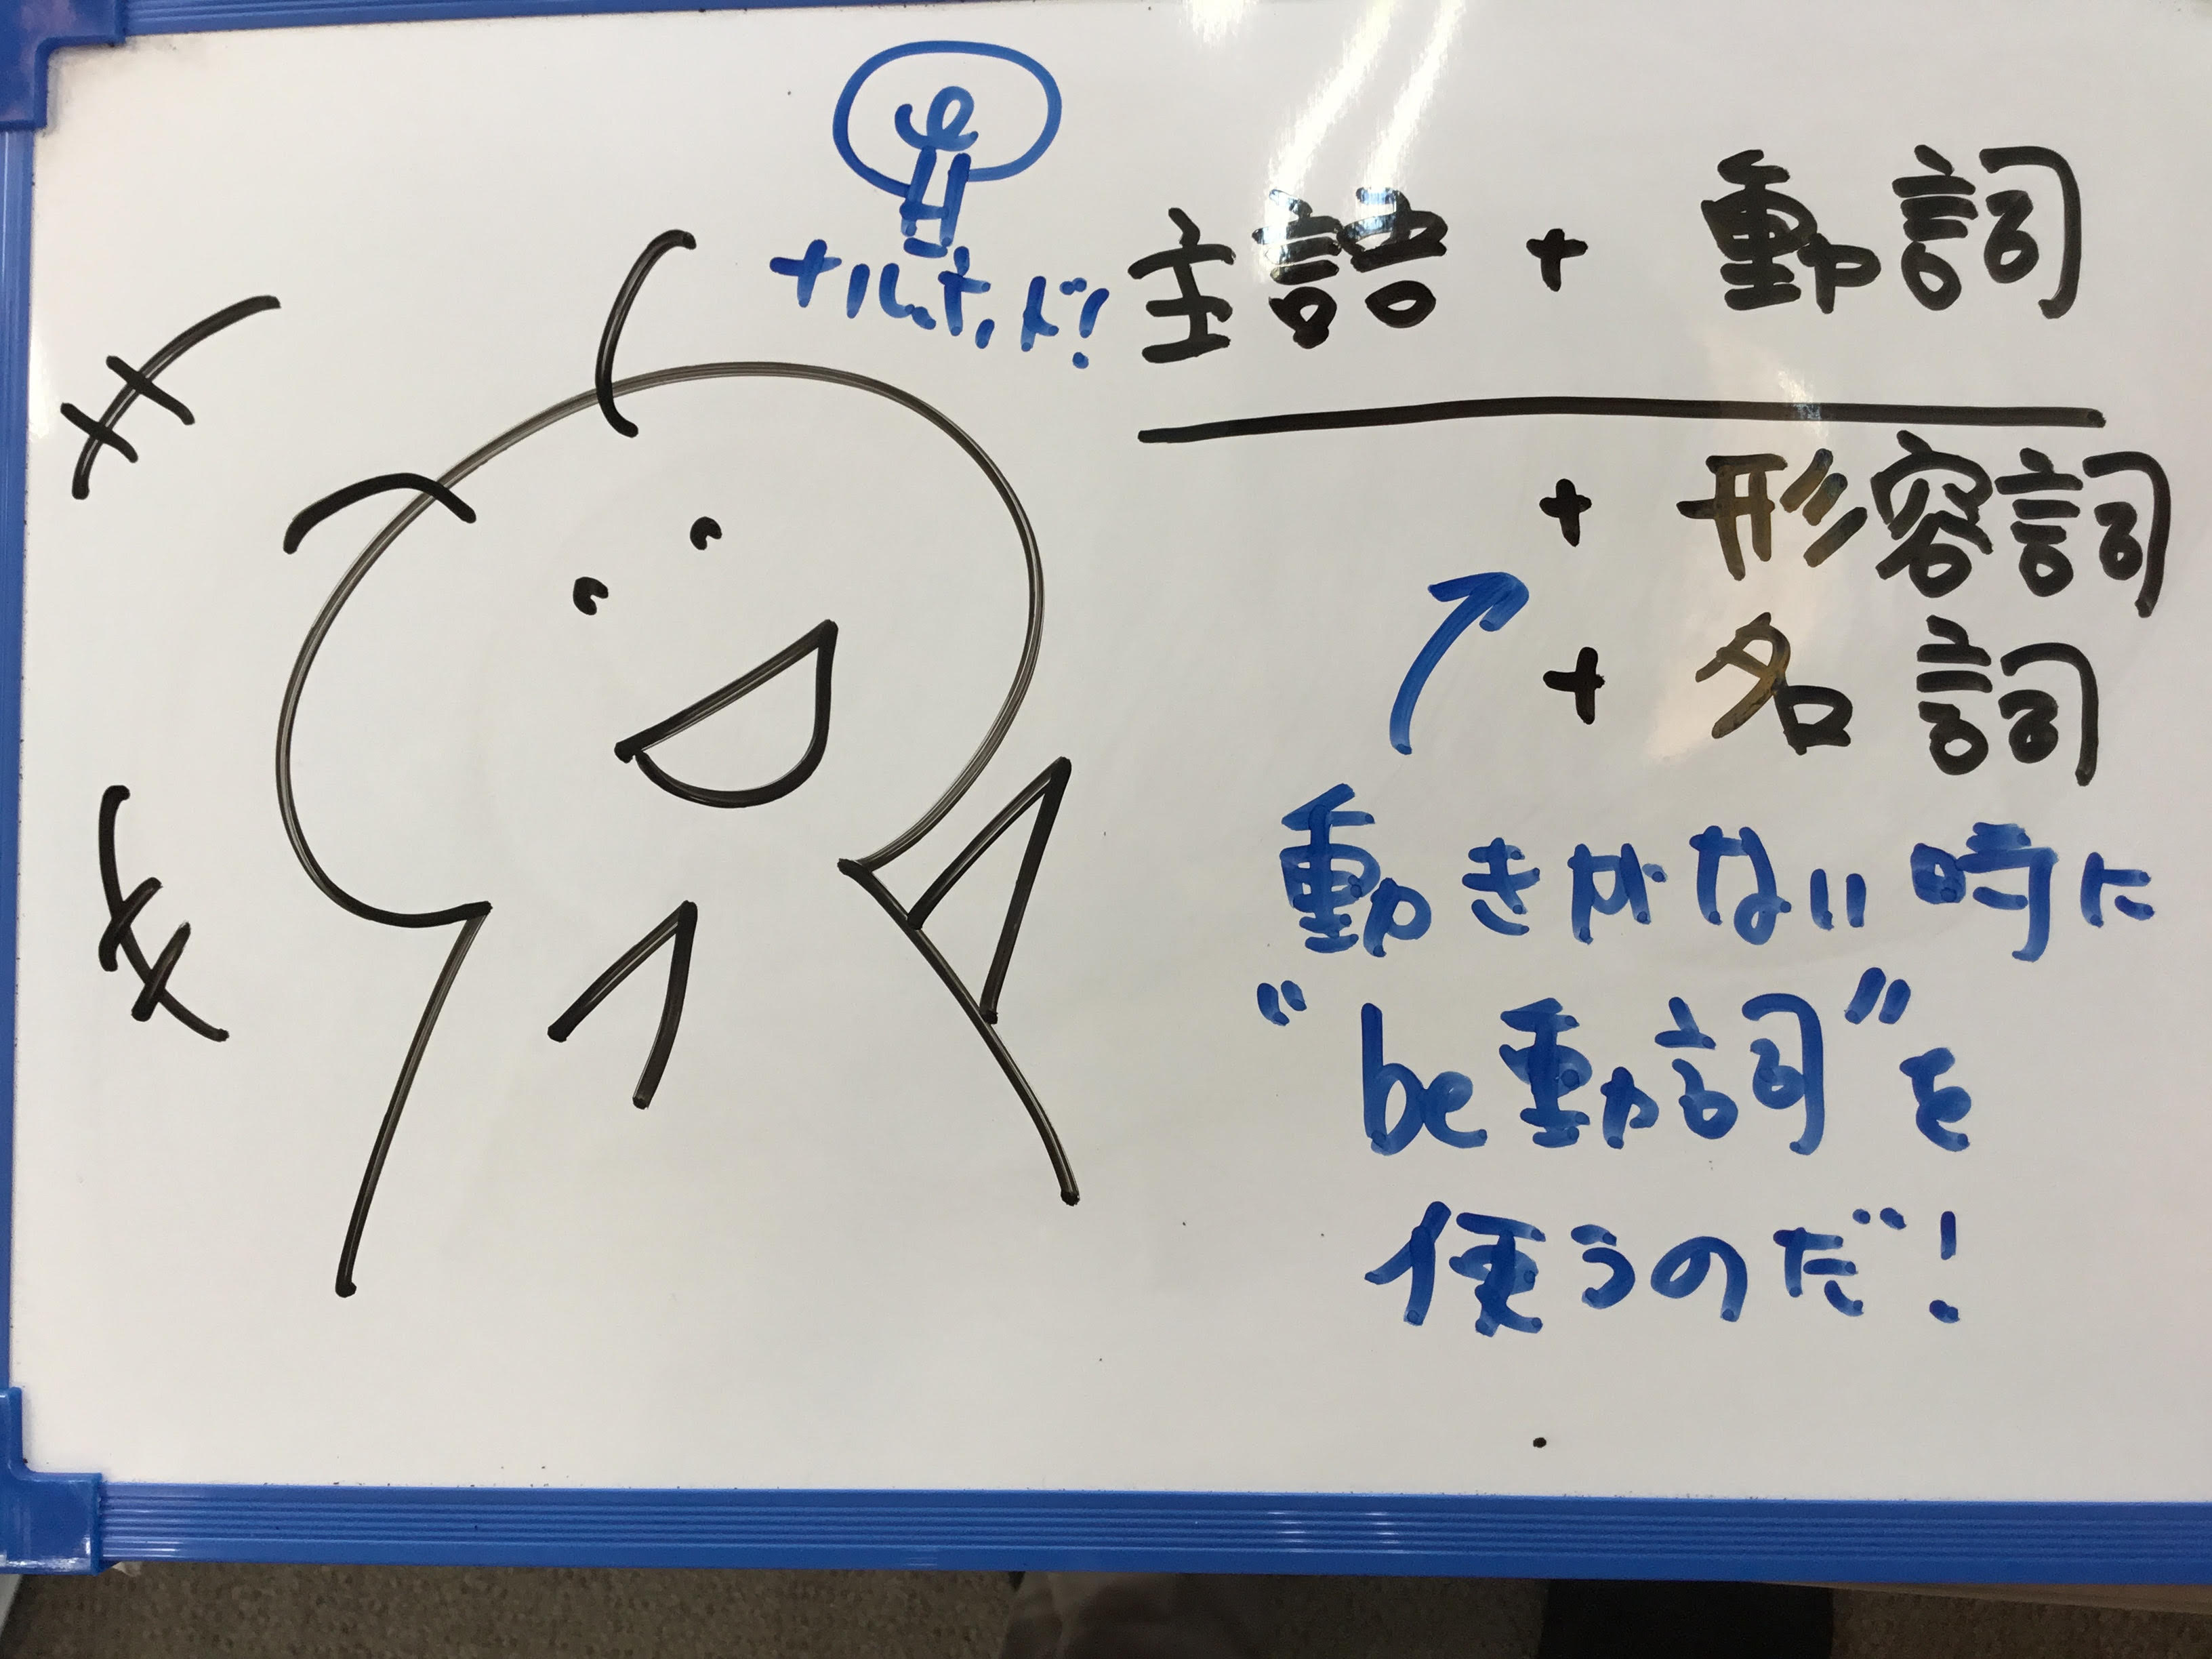 ナルホド!
主語 + 動詞
+ 形容詞
+ 名詞
動きがない時に
“be動詞”を
使うのだ!